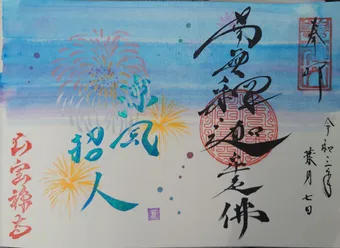 奉拝
南無釋迦牟尼佛
令和三年
葉月七日
涼風
招人